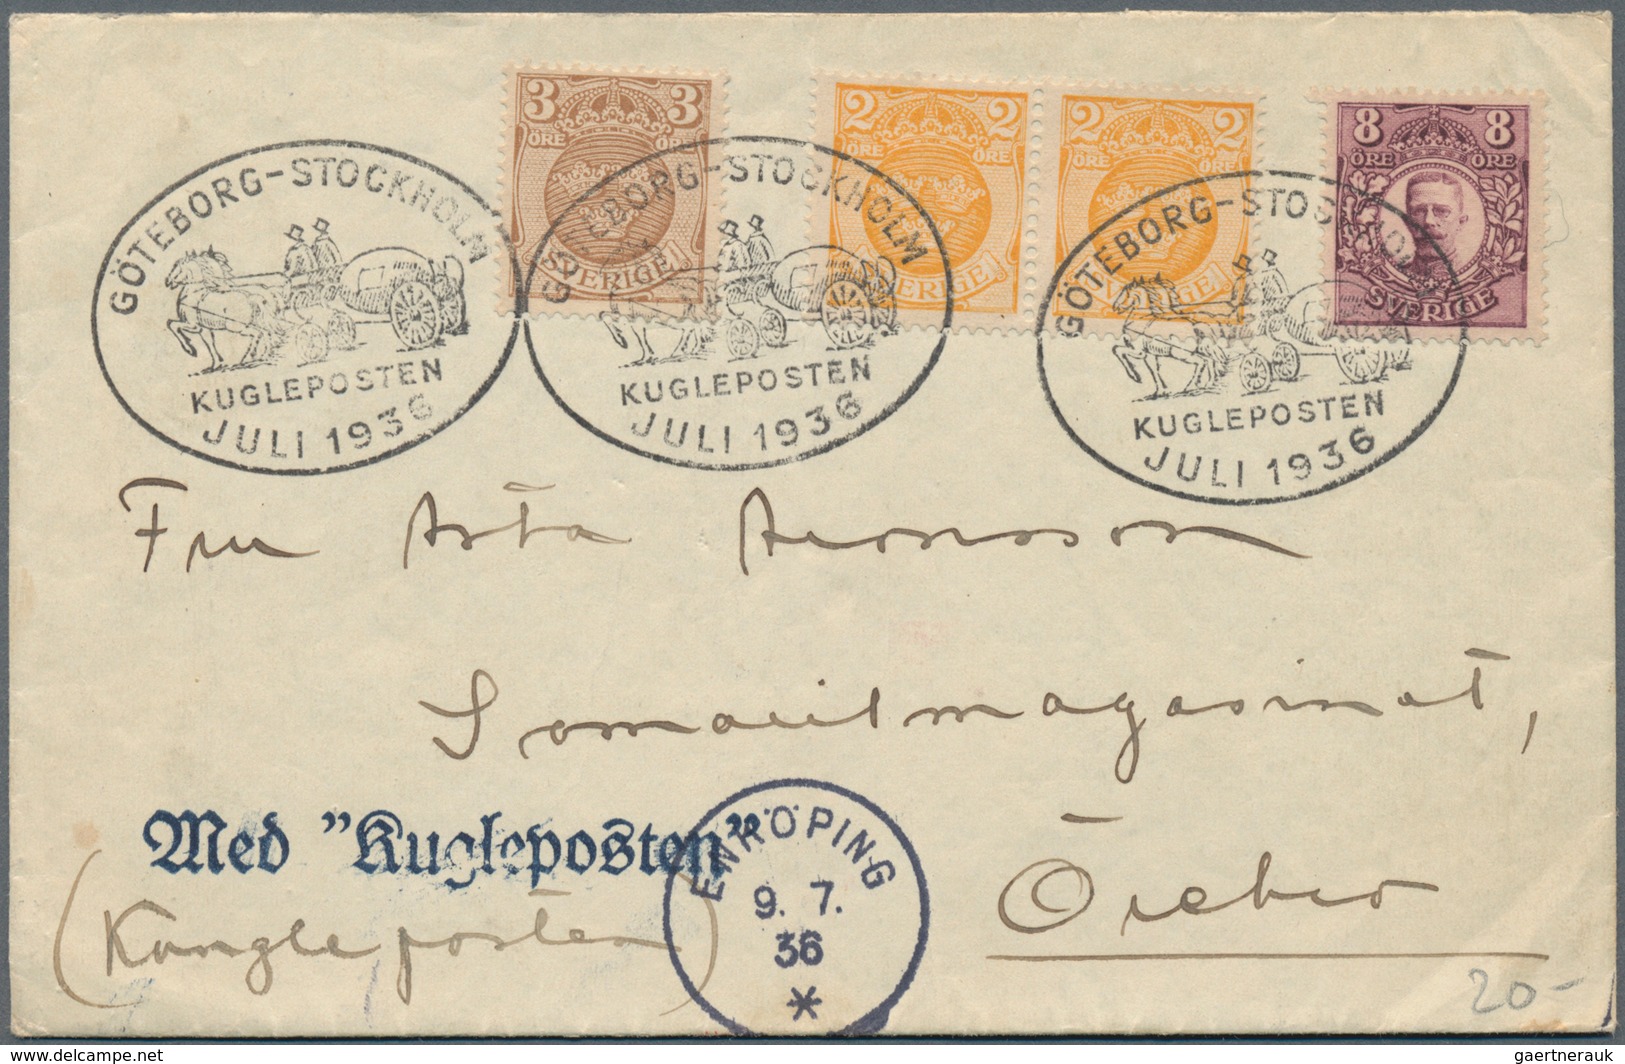 3 3
ÖRE ÖRE
SVERIGE
2 2
ÖRE ÖRE
SVERIGE
2 2
ÖRE ÖRE
SVERIGE
8 8
ÖRE ÖRE
SVERIGE
GÖTEBORG-STOCKHOLM
KUGLEPOSTEN
JULI 1936
GÖTEBORG-STOCKHOLM
KUGLEPOSTEN
JULI 1936
GÖTEBORG-STOCKHOLM
KUGLEPOSTEN
JULI 1936
Fru Asta Aronsson
Örebro
Med "Kugleposten"
(Kungleposten)
ENKÖPING
9. 7.
36
20-
delcampe.net
gaertnerauk